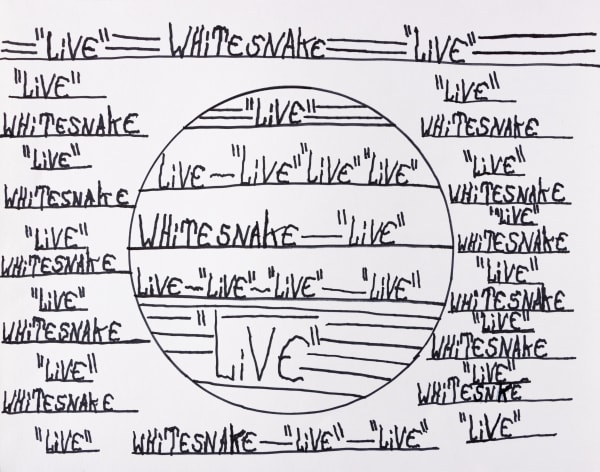 "LiVE" WHiTESNAKE "LiVE"
"LiVE"
WHiTESNAKE
"LiVE"
WHiTESNAKE
"LiVE"
WHiTESNAKE
"LiVE"
WHiTESNAKE
"LiVE"
WHiTESNAKE
"LiVE"
"LiVE"
LiVE ~ "LiVE" "LiVE" "LiVE"
WHiTESNAKE — "LiVE"
LiVE ~ "LiVE" ~ "LiVE" — "LiVE"
"LiVE"
"LiVE"
WHiTESNAKE
"LiVE"
WHiTESNAKE
"LiVE"
WHiTESNAKE
"LiVE"
WHiTESNAKE
"LiVE"
WHiTESNAKE
"LiVE"
WHiTESNKE
"LiVE"
WHiTESNAKE — "LiVE" — "LiVE"